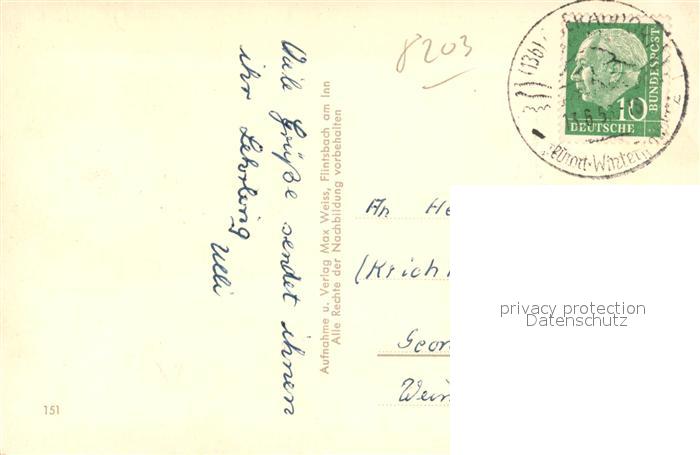 Viele Grüße sendet ihnen
ihr Lehrling
Ulli
Aufnahme u. Verlag Max Weiss, Flintsbach am Inn
Alle Rechte der Nachbildung vorbehalten
151
8203
(13b)
10
DEUTSCHE
BUNDESPOST
An He
(Krich
Geor
Wein
privacy protection
Datenschutz